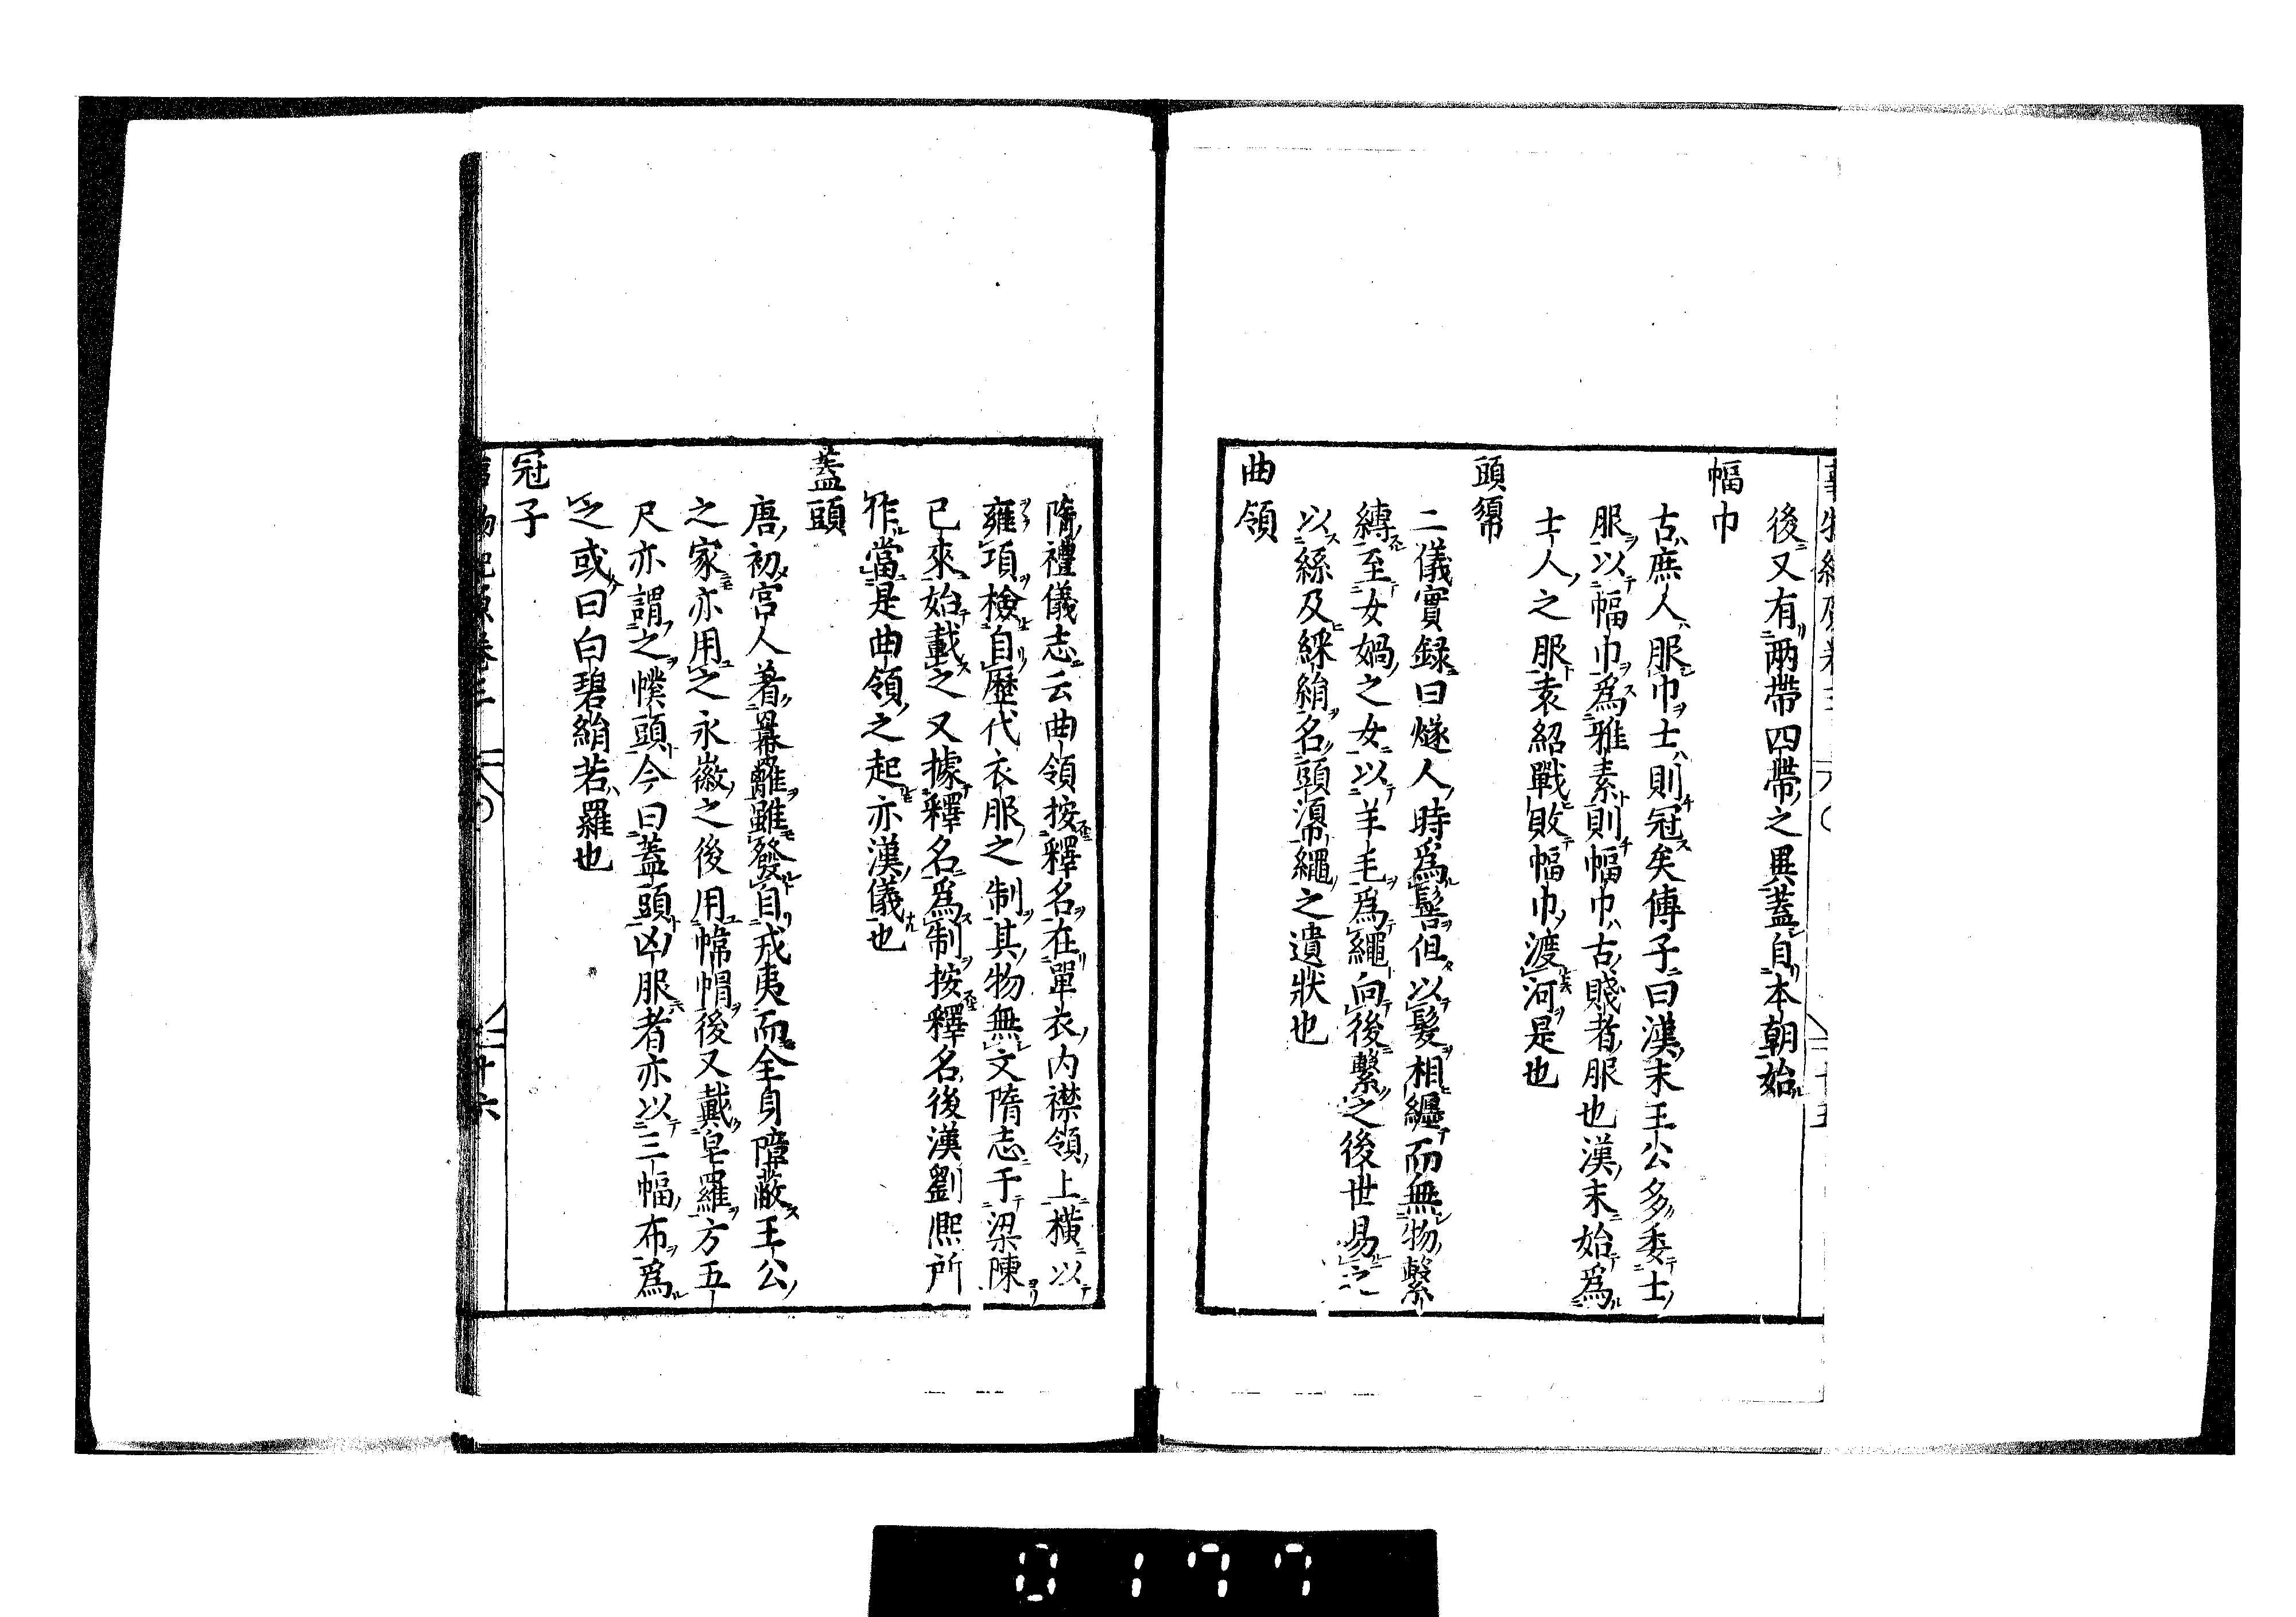 後又有兩帶四帶之異蓋自本朝始
幅巾
古庶人服巾士則冠矣傅子曰漢末王公多委士
服以幅巾爲雅素則幅巾古賤者服也漢末始爲
士人之服袁紹戰敗幅巾渡河是也
頭𢄼
二儀實録曰燧人時爲髻但以髮相纒而無物繫
縛至女媧之女以羊毛爲繩向後繫之後世易之
以絲及綵絹名頭𢄼繩之遺狀也
曲領
隋禮儀志云曲領按釋名在單衣内襟領上橫以
雍項檢自歷代衣服之制其物無文隋志于梁陳
已來始載之又據釋名爲制按釋名後漢劉熈所
作當是曲領之起亦漢儀也
蓋頭
唐初宮人著羃䍦雖發自戎夷而全身障蔽王公
之家亦用之永徽之後用帷帽後又戴皂羅方五
尺亦謂之幞頭今曰蓋頭凶服者亦以三幅布爲
之或曰白碧絹若羅也
冠子
事物紀原卷三
廿六
0177